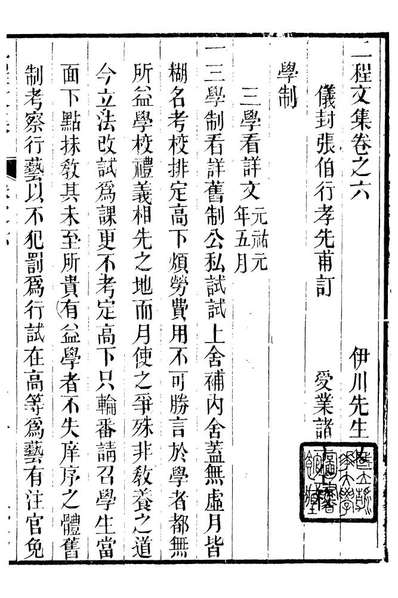 二程文集卷之六
伊川先生
儀封張伯行孝先甫訂
受業諸
學制
三學看詳文元祐元年五月
一三學制看詳舊制公私試試上舍補内舍蓋無虚月皆
糊名考校排定高下煩勞費用不可勝言於學者都無
所益學校禮義相先之地而月使之爭殊非敎養之道
今立法改試爲課更不考定高下只輪番請召學生當
面下點抹敎其未至所貴有益學者不失庠序之體舊
制考察行藝以不犯罰爲行試在高等爲藝有注官免